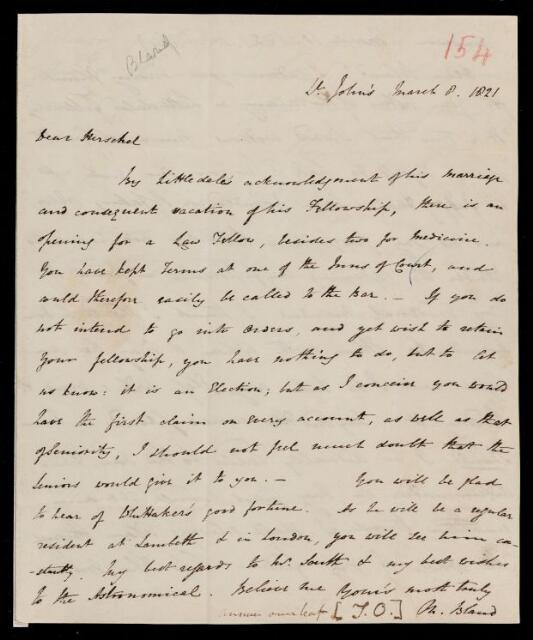 Bland
154
St. John's March 8. 1821
Dear Herschel
By Littledale's acknowledgement of his marriage
and consequent vacation of his Fellowship, there is an
opening for a Law Fellow, besides two for Medicine.
You have kept Terms at one of the Inns of Court, and
could therefore easily be called to the Bar. – If you do
not intend to go into Orders, and yet wish to retain
your fellowship, you have nothing to do, but to let
us know: it is an Election; but as I conceive you would
have the first claim on every account, as well as that
of Seniority, I should not feel much doubt that the
Seniors would give it to you. – You will be glad
to hear of Whittaker's good fortune. As he will be a regular
resident at Lambeth & in London, you will see him con-
-stantly. My best regards to Mr. South & my best wishes
to the Astronomical. Believe me Yours most truly
answer overleaf [T.O.] M. Bland